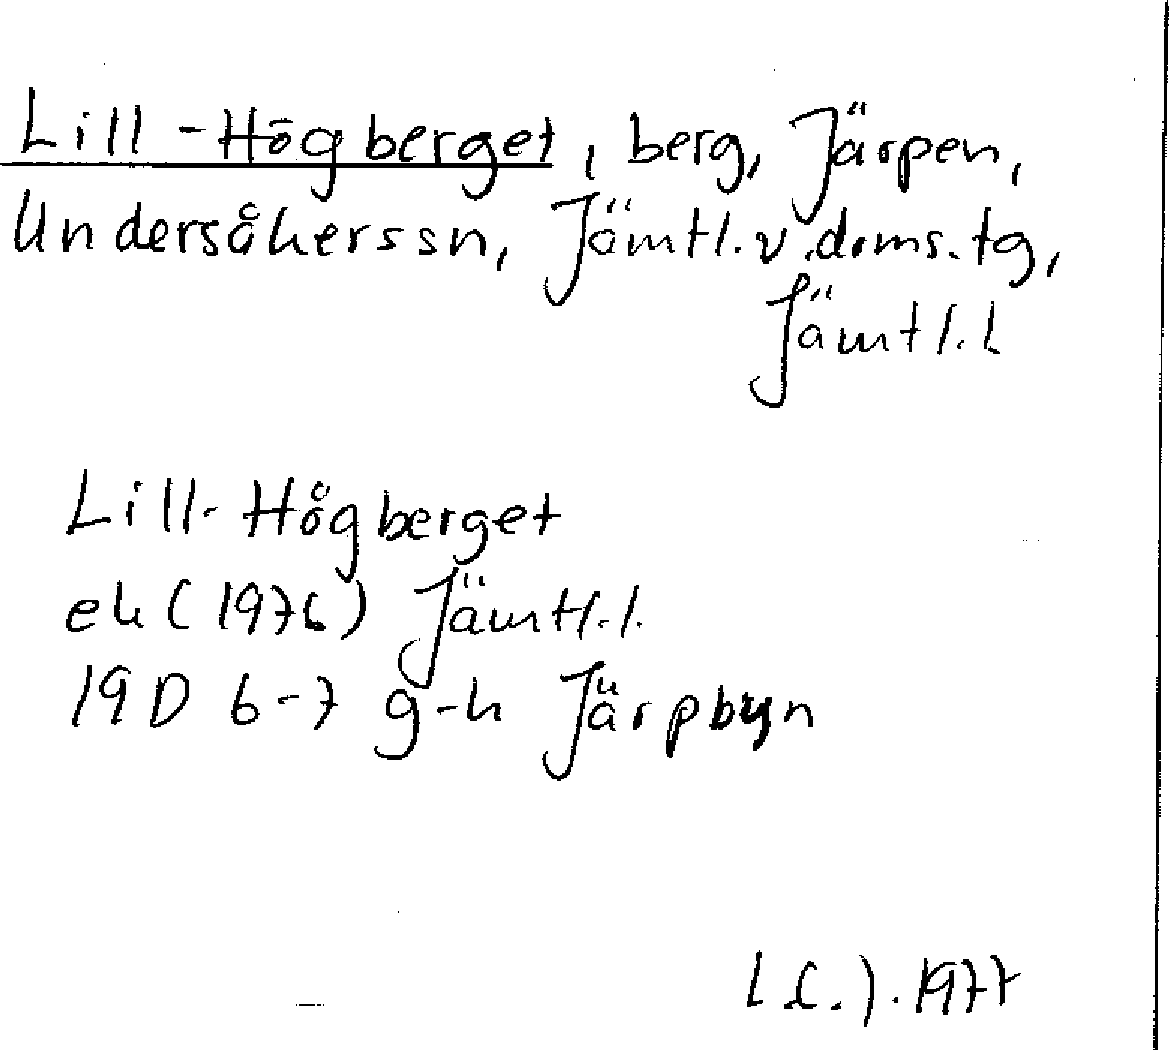 Lill-Högberget, berg, Järpen,
Undersåkerssn, Jämtl. v. doms. tg,
Jämtl. l
Lill-Högberget
ek (1976) Jämtl. l.
19D 6-7 g-h Järpbyn
1977